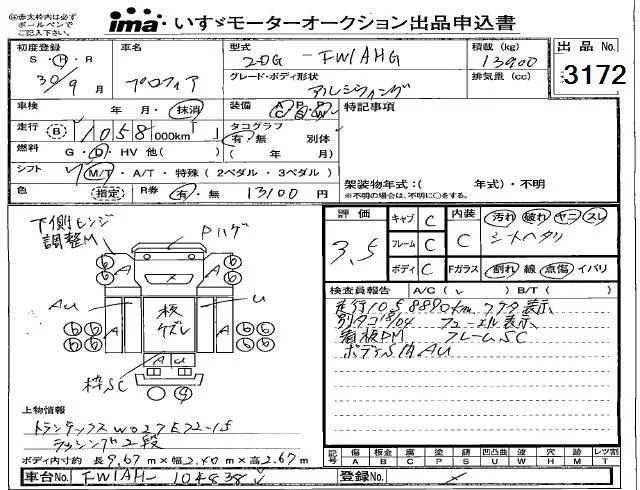 赤太枠内は必ず
ボールペンで
ご記入下さい。
ima いすゞモーターオークション出品申込書
初度登録 S・H・R 30/9 月
車名 プロフィア
型式 2DG - FW1AHG
グレード・ボディ形状 アルミウィング
積載 (kg) 13900
排気量 (cc)
出品 No. 3172
車検 年・月・抹消
装備 A C P S P W
特記事項
走行 B 1058 000km
タコグラフ 有・無 別体
燃料 G・D・HV 他( )
( 年 / 月)
シフト M/T・A/T・特殊(2ペダル・3ペダル)
架装物年式:( 年式)・不明
※不明の場合は、不明に○をする。
色 指定 R券 有・無 13100 円
評価 3.5
キャブ C
フレーム C
ボディ C
内装 C
汚れ 破れ ヤニ スレ
シートヘタリ
Fガラス 割れ 線 点傷 イバリ
下側ヒンジ
調整M
Pハゲ
AU
U
板
ケズレ
枠SC
検査員報告 A/C( ) B/T( )
走行105889Okm
別タコ18/04 フューエル表示
看板PM フレームSC
ボディS内AU
上物情報
トランテックス W027E72-15
ラッシング2段
ボディ内寸約 長 9.67 m×幅 2.40 m×高 2.67 m
記号 傷 A 板金 B 腐 C 塗 P 錆 S 凹凸曲 U 波 W 穴 H 跡 M レツ割 T
車台No. FW1AH- 104838
登録No.